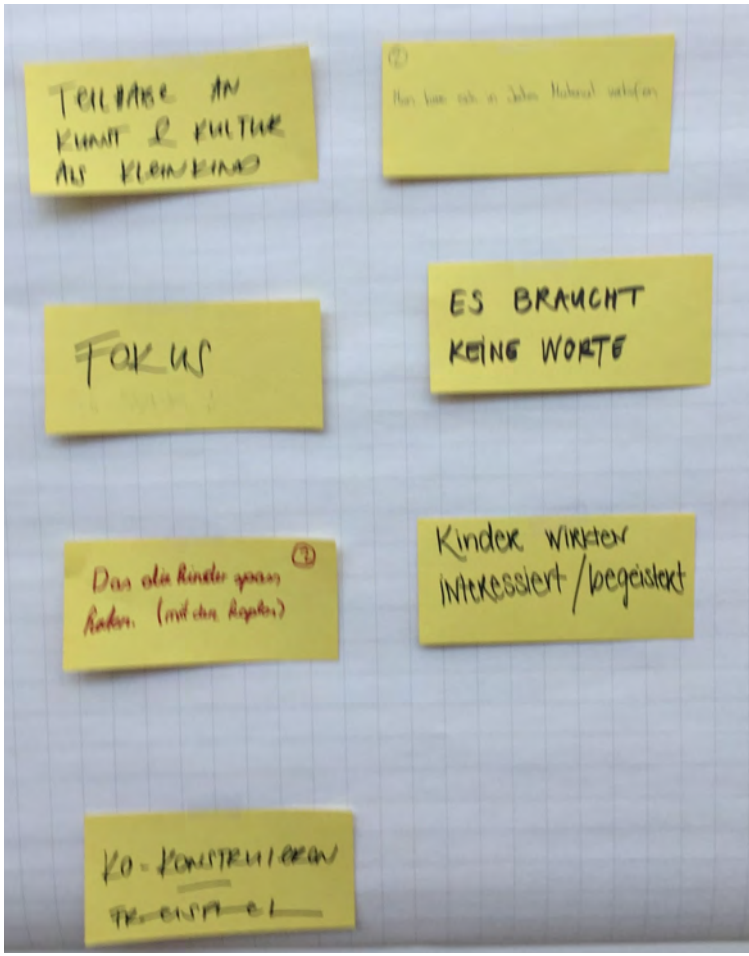 TEILHABE AN
KUNST & KULTUR
ALS KLEINKIND
②
Man kann sich in Material
FOKUS
ES BRAUCHT
KEINE WORTE
②
Das die Kinder spass
haben. (mit den
Kinder wirkten
interessiert/begeistert
KO-KONSTRUIEREN
FREISPIEL